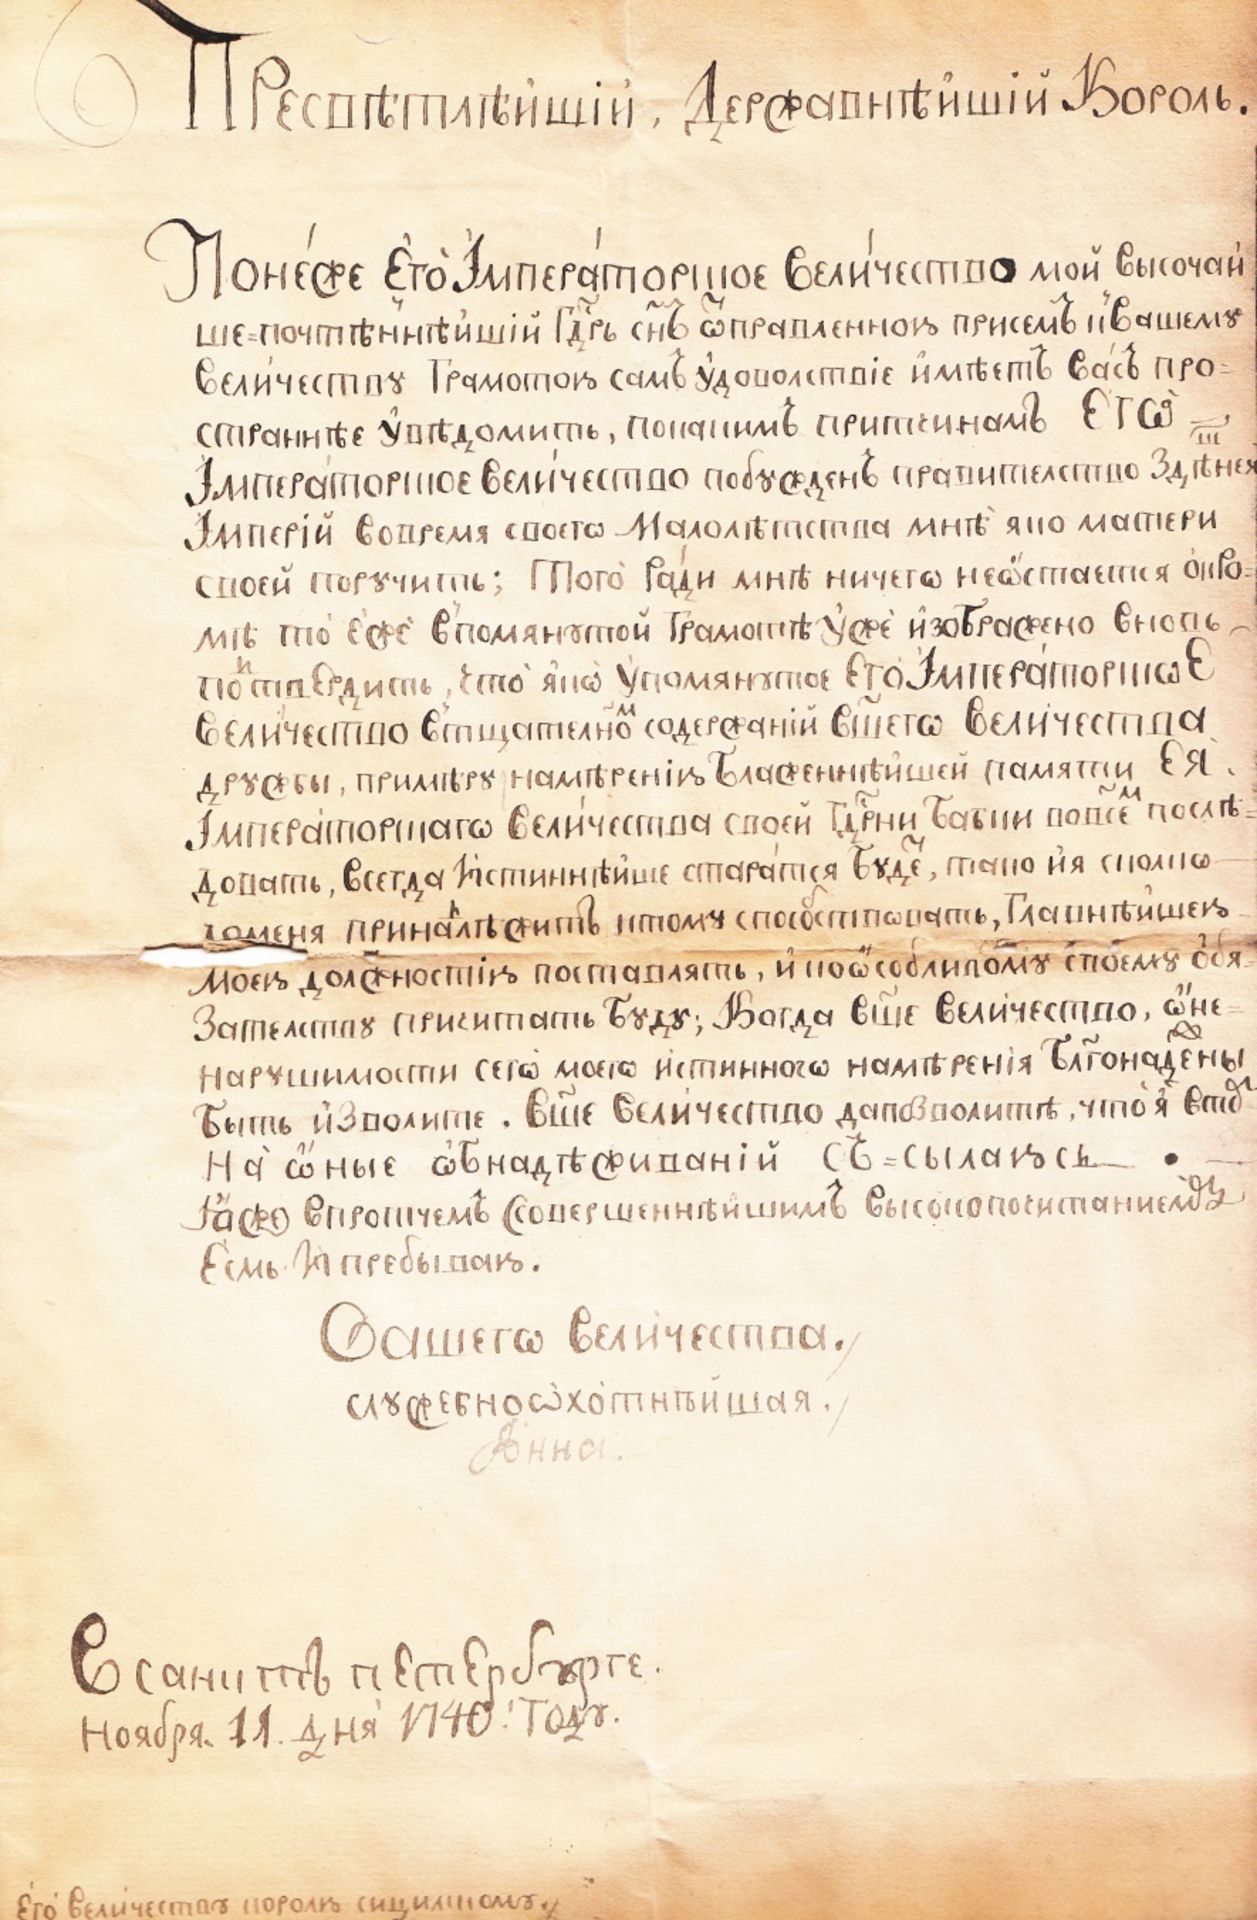 Пресвѣтлѣйшій, Державнѣйшій Король.
Понéже Егò Імперáторское Вели́чество мой высочай
ше=почтѣннѣйшій Гдрь сн҃ъ ѿправленною присемъ и҆ Вашему
Вели́честву Грамотою самъ удоволствіе имѣетъ Вáсъ про=
страннѣе Увѣдомить, покакимъ притчинамъ Егѡ̀
Імперáторское Вели́чество побужденъ правителство Здѣшнея
Імперій вовремя своегѡ Малолѣтства мнѣ яко матери
своей поручить; Тогò Рáди мнѣ ничегѡ неѡстается окро=
мѣ тò ежè впомянутой Грамотѣ Ужè изображено вновь
потвердить, что̀ я́кѡ Упомянутое Егò Імперáторскѡе
Вели́чество втщателном содержаній вшегѡ Вели́чества
дружбы, примѣру намѣренію Блаженнѣйшей памяти Ея̀.
Імперáторскагѡ Вели́чества своей Гдрни Бабки вовсем послѣ=
довать, всегда Истиннѣйше старáтся будеⷮ, тако и я сколкѡ
доменя принáдлѣжитъ ктому способствѡвать, Главнѣйшею
Моею должностію поставлять, и коѡсобливому своему обя=
Зателству причитать Буду; Когда вше вели́чество, ѡне=
нарушимости сегѡ̀ моегѡ истинногѡ намѣренія Блгонадежны
Быть и Зволите. вше Вели́чество даповолитѣ, что̀ я́ втѡ
На̀ ѡ҆ные ѡбнадѣживаній Съ=сылаюсь .
Яже впротчемъ Ссовершеннѣйшимъ высокопочитаниемъ
Есмь И пребываю.
Вашегѡ Вели́чества.
служебноѡхо́тнѣйшая.
Анна.
Всанктъ петербурге.
Ноября. 11. дня̀ 1740. Году.
Егò Вели́честву королю сицилскому.